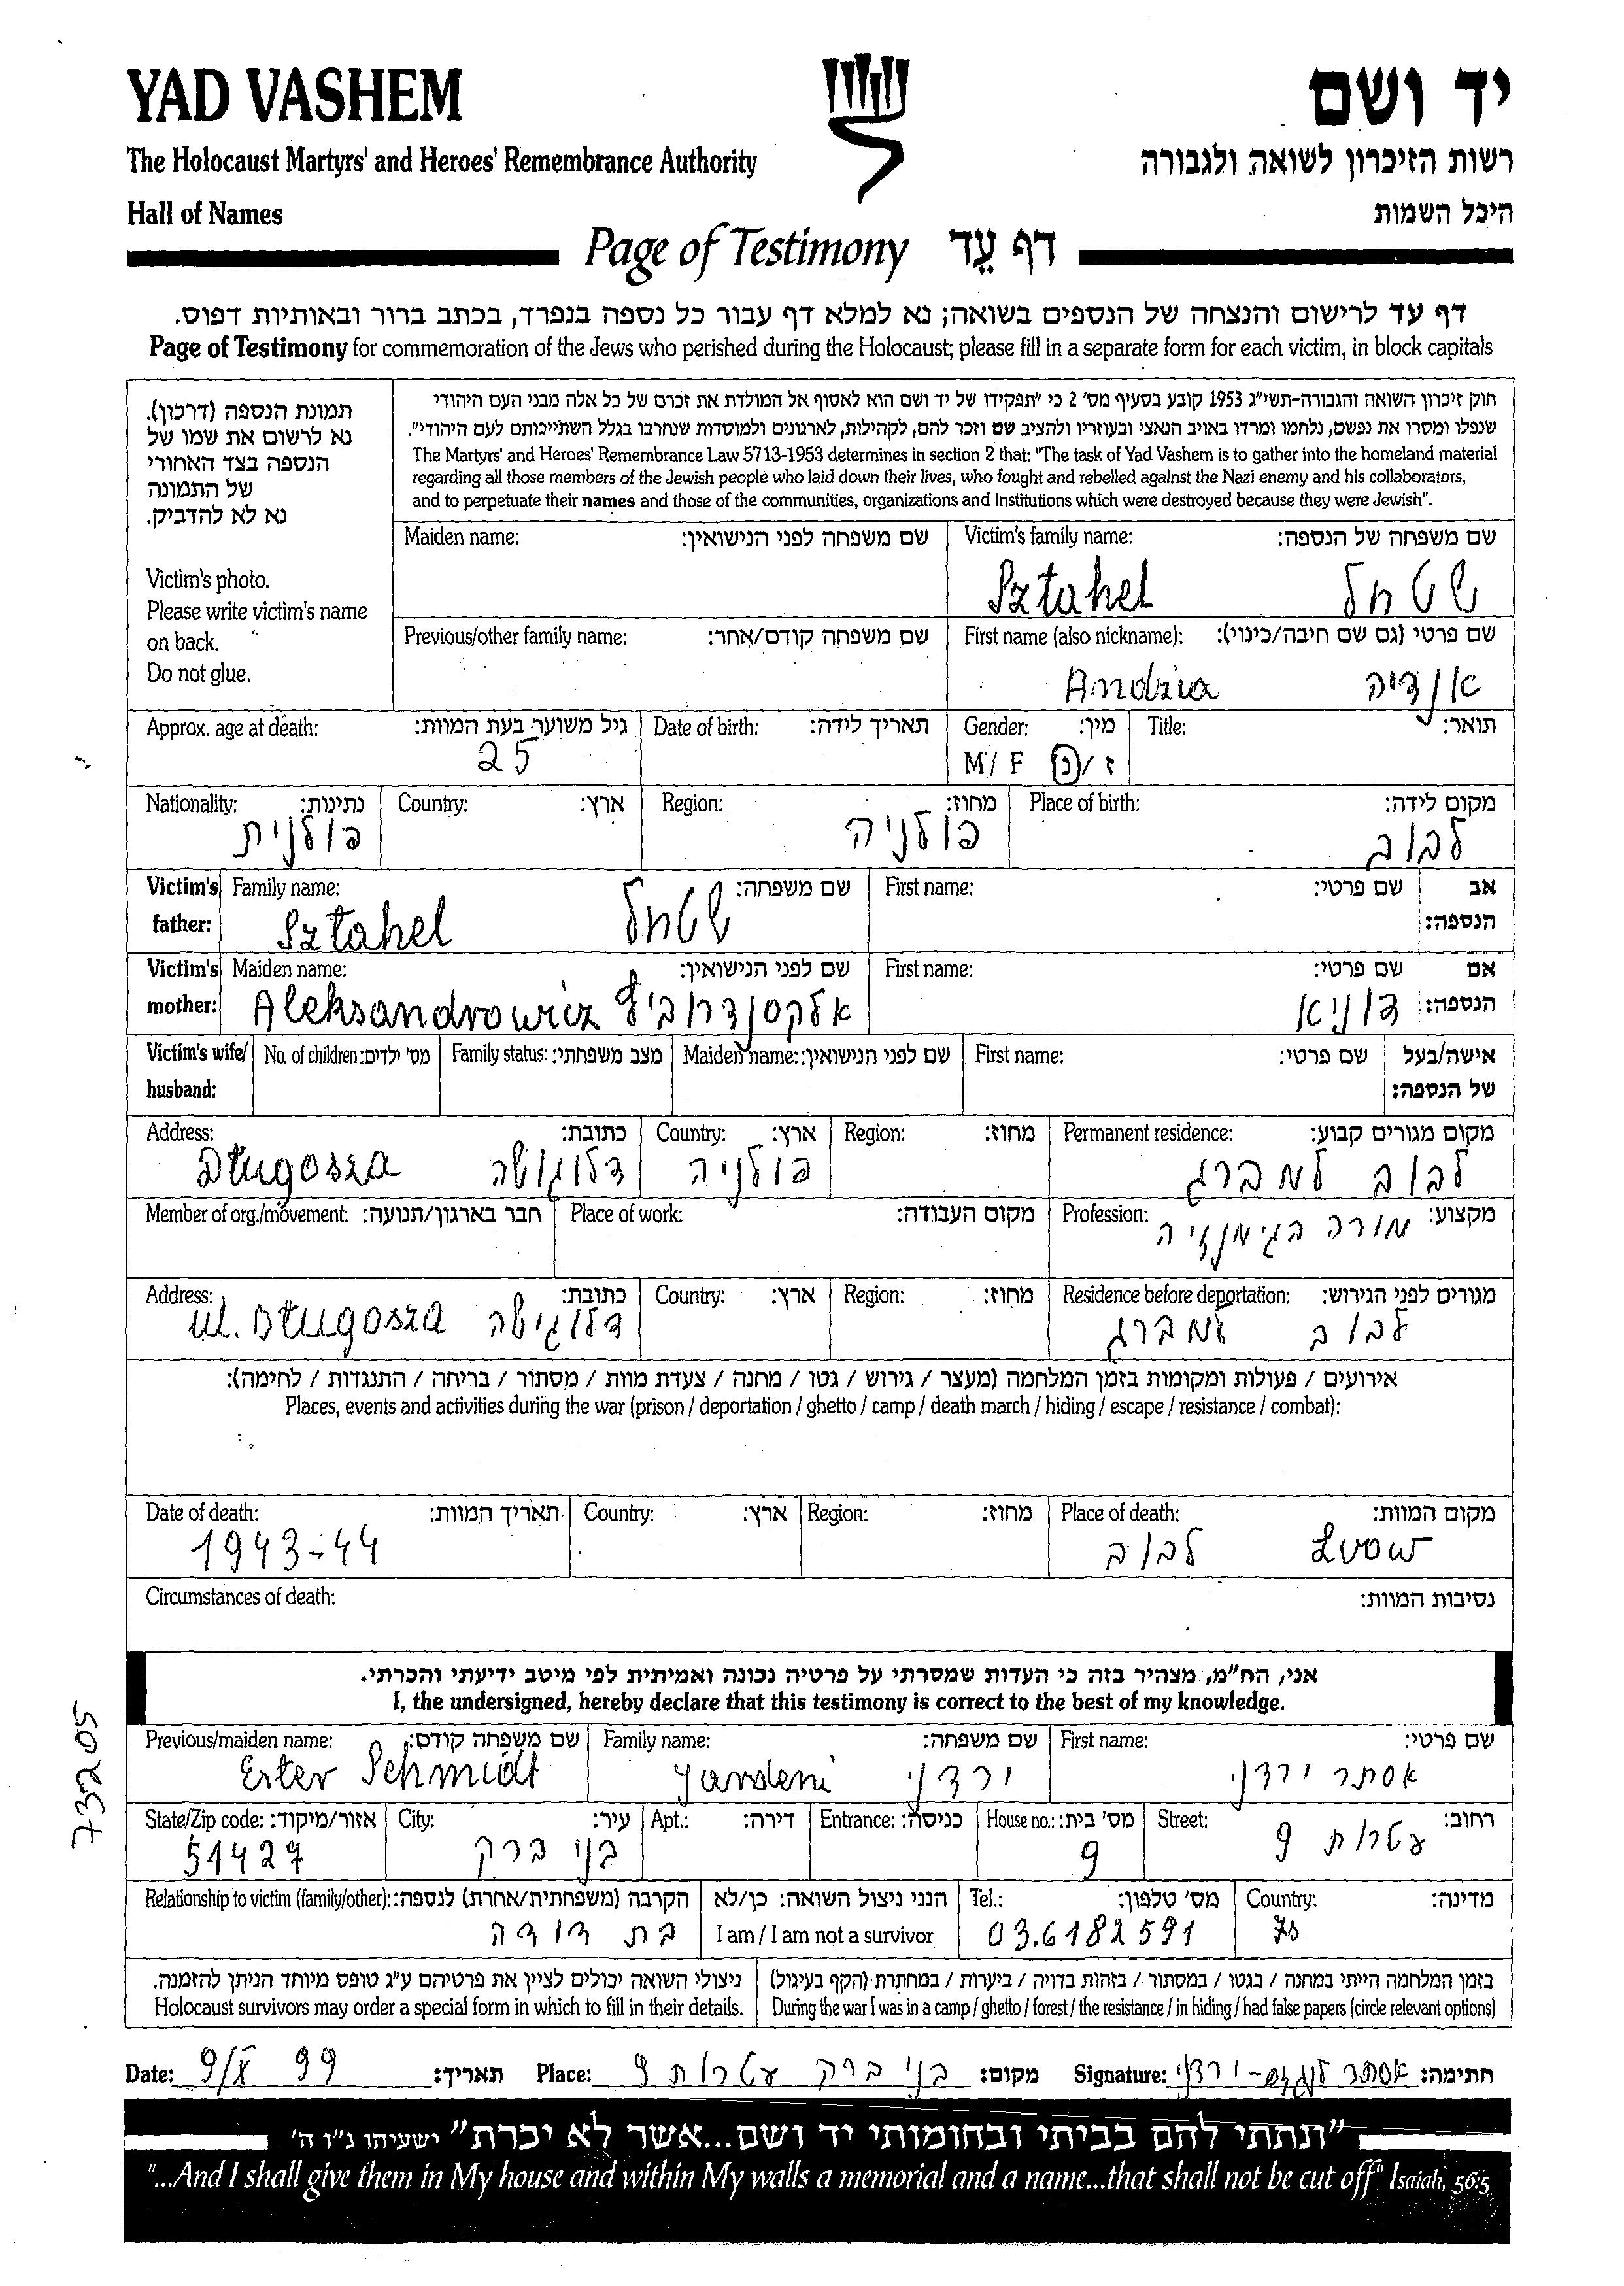 YAD VASHEM
יד ושם
The Holocaust Martyrs' and Heroes' Remembrance Authority
רשות הזיכרון לשואה ולגבורה
Hall of Names
היכל השמות
Page of Testimony דף עֵד
דף עד לרישום והנצחה של הנספים בשואה; נא למלא דף עבור כל נספה בנפרד, בכתב ברור ובאותיות דפוס.
Page of Testimony for commemoration of the Jews who perished during the Holocaust; please fill in a separate form for each victim, in block capitals
תמונת הנספה (דרכון).
נא לרשום את שמו של
הנספה בצד האחורי
של התמונה
נא לא להדביק.
Victim's photo.
Please write victim's name
on back.
Do not glue.
חוק זיכרון השואה והגבורה-תשי"ג 1953 קובע בסעיף מס' 2 כי "תפקידו של יד ושם הוא לאסוף אל המולדת את זכרם של כל אלה מבני העם היהודי
שנפלו ומסרו את נפשם, נלחמו ומרדו באויב הנאצי ובעוזריו ולהציב שם וזכר להם, לקהילות, לארגונים ולמוסדות שנחרבו בגלל השתייכותם לעם היהודי".
The Martyrs' and Heroes' Remembrance Law 5713-1953 determines in section 2 that: "The task of Yad Vashem is to gather into the homeland material
regarding all those members of the Jewish people who laid down their lives, who fought and rebelled against the Nazi enemy and his collaborators,
and to perpetuate their names and those of the communities, organizations and institutions which were destroyed because they were Jewish".
Maiden name: שם משפחה לפני הנישואין:
Victim's family name: שם משפחה של הנספה:
Sztahel שטחל
Previous/other family name: שם משפחה קודם/אחר:
First name (also nickname): שם פרטי (גם שם חיבה/כינוי):
Andzia אנדיה
Approx. age at death: גיל משוער בעת המוות:
25
Date of birth: תאריך לידה:
Gender: מין:
M/ F ז/נ
Title: תואר:
Nationality: נתינות:
פולנית
Country: ארץ:
Region: מחוז:
פולניה
Place of birth: מקום לידה:
לבוב
Victim's father: Family name: שם משפחה:
Sztahel שטחל
First name: שם פרטי: אב הנספה:
Victim's mother: Maiden name: שם לפני הנישואין:
Aleksandrowicz אלקסנדרוביץ
First name: שם פרטי: אם הנספה:
דוניא
Victim's wife/ husband:
No. of children: מס' ילדים:
Family status: מצב משפחתי:
Maiden name: שם לפני הנישואין:
First name: שם פרטי:
אישה/בעל של הנספה:
Address: כתובת:
Długosza דלוגושה
Country: ארץ:
פולניה
Region: מחוז:
Permanent residence: מקום מגורים קבוע:
לבוב למברג
Member of org./movement: חבר בארגון/תנועה:
Place of work: מקום העבודה:
Profession: מקצוע:
מורה בגימנזיה
Address: כתובת:
ul. Długosza דלוגישה
Country: ארץ:
Region: מחוז:
Residence before deportation: מגורים לפני הגירוש:
לבוב למברג
אירועים / פעולות ומקומות בזמן המלחמה (מעצר / גירוש / גטו / מחנה / צעדת מוות / מסתור / בריחה / התנגדות / לחימה):
Places, events and activities during the war (prison / deportation / ghetto / camp / death march / hiding / escape / resistance / combat):
Date of death: תאריך המוות:
1943-44
Country: ארץ:
Region: מחוז:
Place of death: מקום המוות:
לבוב Lvow
Circumstances of death: נסיבות המוות:
אני, הח"מ, מצהיר בזה כי העדות שמסרתי על פרטיה נכונה ואמיתית לפי מיטב ידיעתי והכרתי.
I, the undersigned, hereby declare that this testimony is correct to the best of my knowledge.
Previous/maiden name: שם משפחה קודם:
Ester Schmidt
Family name: שם משפחה:
Yardeni ירדני
First name: שם פרטי:
אסתר ירדני
State/Zip code: אזור/מיקוד:
51427
City: עיר:
בני ברק
Apt.: דירה:
Entrance: כניסה:
House no.: מס' בית:
9
Street: רחוב:
עטרות 9
Relationship to victim (family/other): הקרבה (משפחתית/אחרת) לנספה:
בת דודה
הנני ניצול השואה: כן/לא
I am / I am not a survivor
Tel.: מס' טלפון:
03.6182591
Country: מדינה:
ניצולי השואה יכולים לציין את פרטיהם ע"ג טופס מיוחד הניתן להזמנה.
Holocaust survivors may order a special form in which to fill in their details.
בזמן המלחמה הייתי במחנה / בגטו / במסתור / בזהות בדויה / ביערות / במחתרת (הקף בעיגול)
During the war I was in a camp / ghetto / forest / the resistance / in hiding / had false papers (circle relevant options)
Date: 9/X 99 תאריך:
Place: בני ברק עטרות 9 מקום:
Signature: אסתר ירדני חתימה:
"ונתתי להם בביתי ובחומותי יד ושם...אשר לא יכרת" ישעיהו נ"ו ה'
"...And I shall give them in My house and within My walls a memorial and a name...that shall not be cut off" Isaiah, 56:5
73205